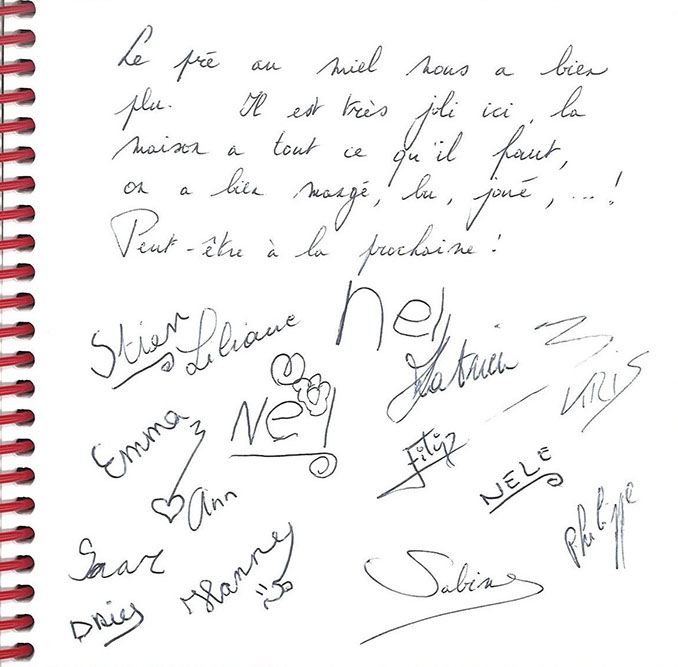 Le pré au miel nous a bien
plu. Il est très joli ici, la
maison a tout ce qu'il faut,
on a bien mangé, bu, joué, ...!
Peut-être à la prochaine!
Stien Liliane Nel
Katrien
KRIS
Emma Nel
Filip
NELE
Ann
Philippe
Saar
Hanne
Dries
Sabine